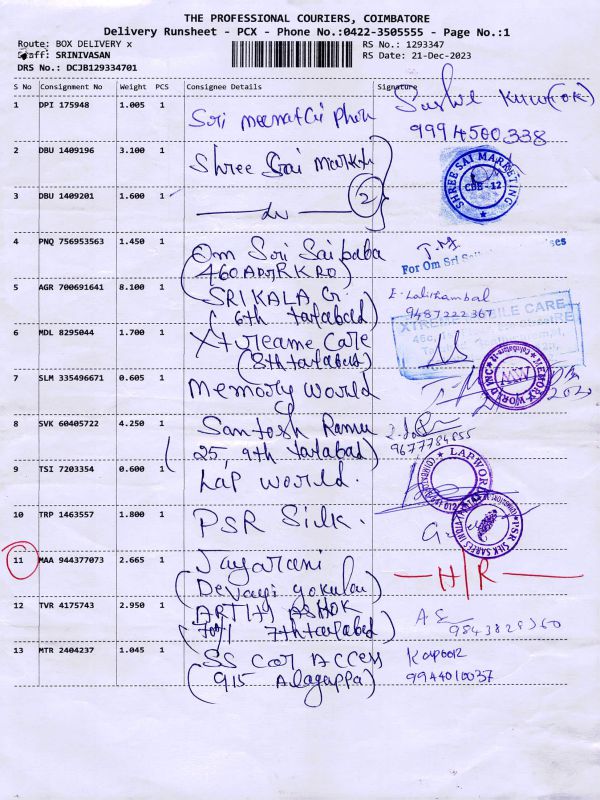 THE PROFESSIONAL COURIERS, COIMBATORE
Delivery Runsheet - PCX - Phone No.:0422-3505555 - Page No.:1
Route: BOX DELIVERY x
RS No.: 1293347
Staff: SRINIVASAN
RS Date: 21-Dec-2023
DRS No.: DCJB129334701
S No Consignment No Weight PCS Consignee Details Signature
1 DPI 175948 1.005 1 Sri
9994500338
2 DBU 1409196 3.100 1 Shree Sai
SHREE SAI MARKETING
CBE-12
3 DBU 1409201 1.600 1
2
4 PNQ 756953563 1.450 1 Om Sri Sai baba
(460
For Om Sri
5 AGR 700691641 8.100 1 SRIKALA G.
(6th tatabad)
9487222367
6 MDL 8295044 1.700 1 Xtreame Care
(8th tatabad)
7 SLM 335496671 0.605 1 Memory World
MEMORY WORLD INC
MW
8 SVK 60405722 4.250 1 Santosh Ramu
(25, 9th tatabad)
9677784855
9 TSI 7203354 0.600 1 Lap World.
LAPWORLD
10 TRP 1463557 1.800 1 PSR Silk.
PSR SILK SAREES INDIA
11 MAA 944377073 2.665 1 Jayarani
(Devayi gokulam
H/R
12 TVR 4175743 2.950 1 ARTHY ASHOK
7th tatabad)
9843828360
13 MTR 2404237 1.045 1 SS Car Access
(915 Alagappa)
Kapoor
9944010037